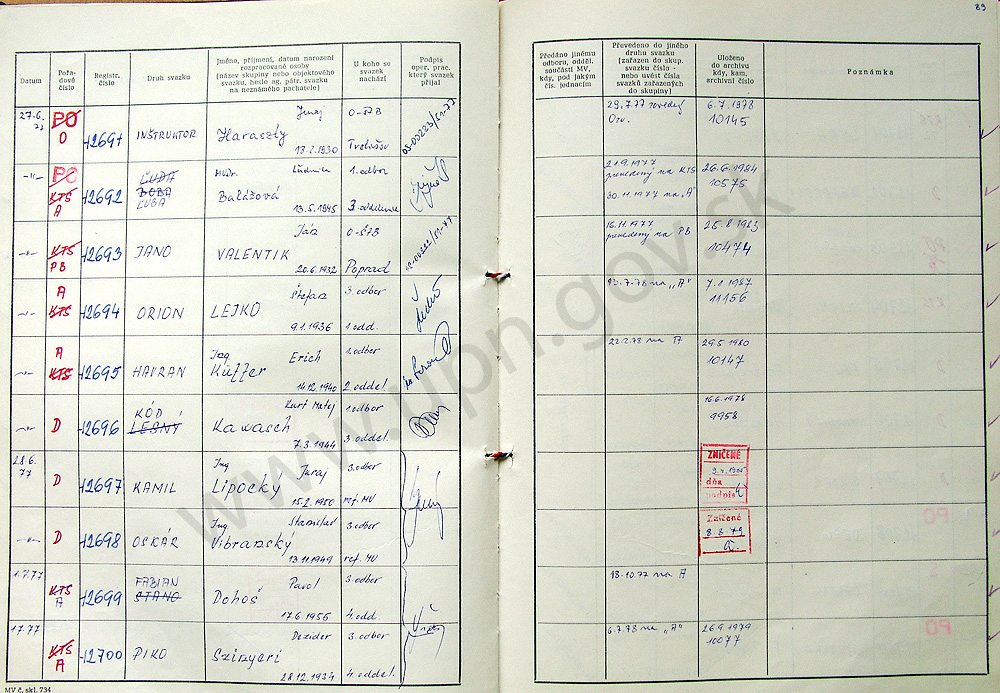 89
Datum
Pořadové číslo
Registr. číslo
Druh svazku
Jméno, příjmení, datum narození
rozpracované osoby
(název skupiny nebo objektového
svazku, heslo ag. pátr. svazku
na neznámého pachatele)
U koho se
svazek
nachází
Podpis
oper. prac.
který svazek
přijal
Předáno jinému
odboru, odděl.
součásti MV,
kdy, pod jakým
čís. jednacím
Převedeno do jiného
druhu svazku
(zařazen do skup.
svazku číslo -
nebo uvést čísla
svazků zařazených
do skupiny)
Uloženo
do archivu
kdy, kam,
archivní číslo
Poznámka
27.6.
PO
D
12691
INŠTRUKTOR
Juraj
Haraszty
18.2.1930
O-ŠTB
29.7.77
6.7.1978
10145
PO
KTS
A
12692
ĽUDA
ĽUBA
Ľudmila
Balážová
13.5.1945
1. odbor
3. oddelenie
21.9.1977
prevedený na KTS
30.11.1977 na "A"
26.6.1984
10575
KTS
PB
12693
JANO
Ján
VALENTIK
20.6.1932
O-ŠTB
Poprad
16.11.1977
prevedený na PB
25.8.1983
10474
A
KTS
12694
ORION
Štefan
LEJKO
9.1.1936
3. odbor
1. odd.
.7.78 na "A"
7.1.1987
11156
A
KTS
12695
HAVRAN
Ing
Erich
Küffer
14.12.1940
1. odbor
2. oddel.
22.2.78 na
29.5.1980
10147
D
12696
KÓD
LESNÝ
Kurt Matej
Kawasch
7.3.1944
1. odbor
3. oddel.
16.6.1978
9958
28.6.
77
D
12697
KAMIL
Ing
Juraj
Lipocký
15.2.1950
3. odbor
ref. MV
ZNIČENÉ
dňa
podpis
D
12698
OSKÁR
Ing
Stanislav
Vibranský
13.11.1949
3. odbor
ref. MV
Zničené
8.8.79
1.7.77
KTS
A
12699
FABIAN
STANO
Pavol
Dohoš
17.6.1955
3. odbor
4. odd.
18.10.77 na A
1.7.77
KTS
A
12700
PIKO
Dezider
Szinyeri
28.12.1934
3. odbor
4. oddel.
6.7.78 na "A"
26.9.1979
10077
MV č. skl. 734
www.upn.gov.sk